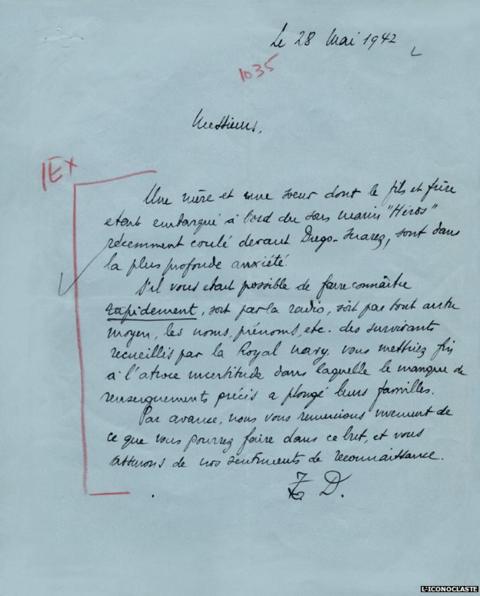 Le 28 Mai 1942
1035
Messieurs,
1Ex
Une mère et une soeur dont le fils et frère
etait embarqué à bord du sous marin "Héros"
récemment coulé devant Diego-Suarez, sont dans
la plus profonde anxiété.
S'il vous etait possible de faire connaître
rapidement, soit par la radio, soit par tout autre
moyen, les noms, prénoms, etc. des survivants
recueillis par la Royal navy, vous mettriez fin
à l'atroce incertitude dans laquelle le manque de
renseignements précis a plongé leurs familles.
Par avance, nous vous remercions vivement de
ce que vous pourrez faire dans ce but, et vous
assurons de nos sentiments de reconnaissance.
D.
L'ICONOCLASTE